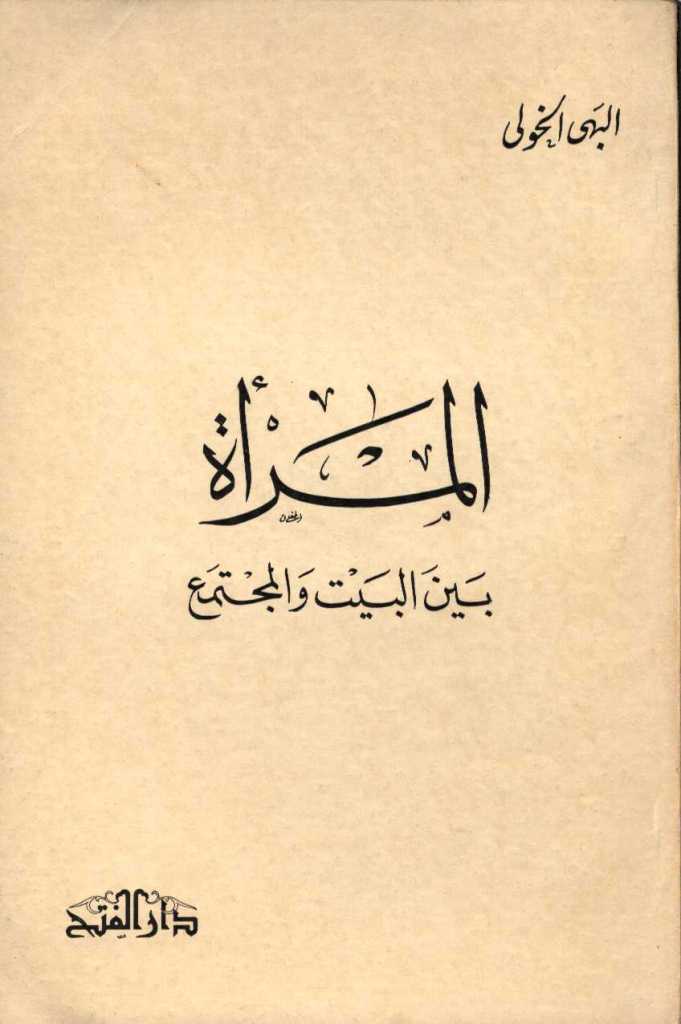 البهى الخولى
المرأة
بَينَ البَيْت وَالمجْتمَع
دار الفتح